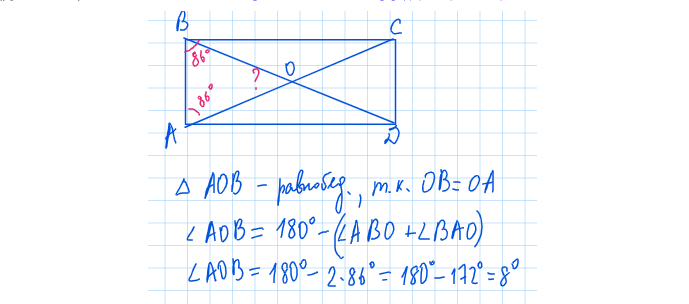 B
C
86°
?
O
86°
A
D
△ AOB – равнобед., т.к. OB=OA
∠AOB = 180° – (∠ABO + ∠BAO)
∠AOB = 180° – 2·86° = 180° – 172° = 8°